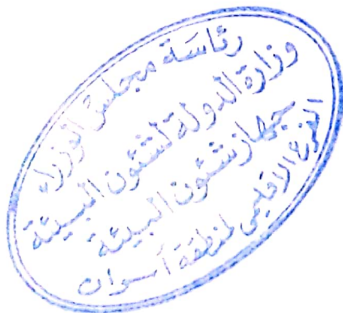 رئاسة مجلس الوزراء
وزارة الدولة لشئون البيئة
جهاز شئون البيئة
الفرع الإقليمي لمنطقة أسوان